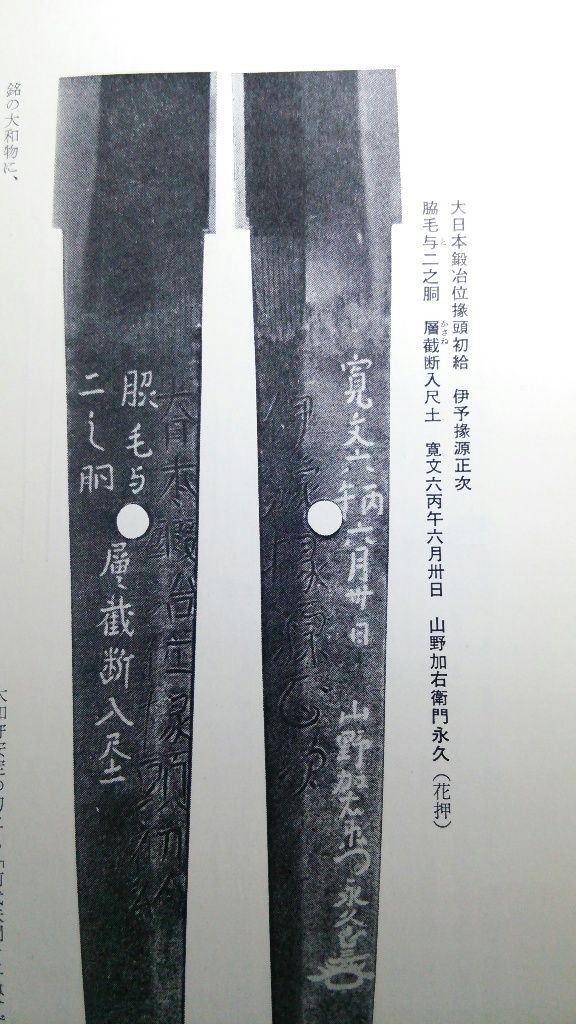 大日本鍛冶位掾頭初給　伊予掾源正次
脇毛与二之胴　層截断入尺土　寛文六丙午六月卅日　山野加右衛門永久（花押）
と
かさね
寛文六丙午六月卅日　山野加右衛門永久
伊予掾源正次
大日本鍛冶位掾頭初給
脇毛与
二之胴　層截断入尺土
銘の大和物に、